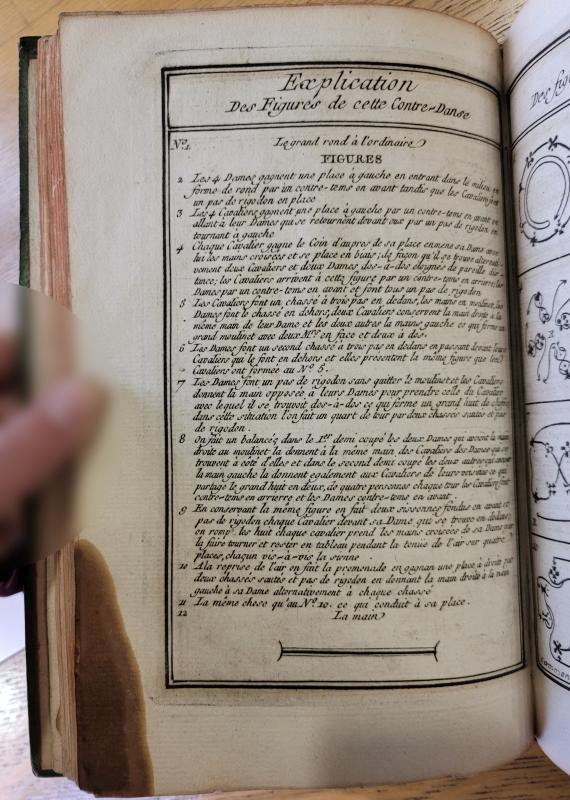 Explication
Des Figures de cette Contre-Danse
No. 1. Le grand rond à l'ordinaire
FIGURES
2 Les 4 Dames gagnent une place à gauche en entrant dans le milieu en
forme de rond par un contre-tems en avant tandis que les Cavaliers font
un pas de rigodon en place
3 Les 4 Cavaliers gagnent une place à gauche par un contre-tems en avant en
allant à leur Dames qui se retournent devant eux par un pas de rigodon en
tournant à gauche
4 Chaque Cavalier gagne le Coin d'aupres de sa place enmene sa Dame avec
lui les mains croisees et se place en biais; de façon qu'il se trouve alternati-
vement deux Cavaliers et deux Dames, dos-à-dos eloignés de pareille dis-
tance; les Cavaliers arrivent à cette figure par un contre-tems en arriere, les
Dames par un contre-tems en avant et font tous un pas de rigodon
5 Les Cavaliers font un chassé à trois pas en dedans, les mains en moulinet, les
Dames font le chassé en dehors, deux Cavaliers conservent la main droite à la
même main de leur Dame et les deux autres la main gauche ce qui forme un
grand moulinet avec deux Mrs en face et deux à dos.
6 Les Dames font un second chassé à trois pas en dedans en passant devant leurs
Cavaliers qui le font en dehors et elles présentent la même figure que les
Cavaliers ont formée au No 5.
7 Les Dames font un pas de rigodon sans quitter le moulinet et les Cavaliers
donnent la main opposée à leurs Dames pour prendre celle du Cavalier
avec lequel il se trouvoit dos-à-dos ce qui forme un grand huit de chifre
dans cette situation l'on fait un quart de tour par deux chassés sautés et pas
de rigodon.
8 On fait un balancé; dans le 1er demi coupé les deux Dames qui avoient la main
droite au moulinet la donnent à la même main des Cavaliers des Dames qui se
trouvent à côté d'elles et dans le second demi coupé les deux autres qui avoient
la main gauche la donnent egalement aux Cavaliers de leurs voisines ce qui
partage le grand huit en deux, de quatre personnes chaque tour les Cavaliers font
contre-tems en arrierre et les Dames contre-tems en avant.
9 En conservant la même figure en fait deux sissonnes fondus en avant et
pas de rigodon chaque Cavalier devant sa Dame qui se trouve en dedans,
on rompt les huit chaque cavalier prend les mains croisées de sa Dame pour
la faire tourner et rester en tableau pendant la tenüe de l'air sur quatre
places, chacun vis-à-vis la sienne.
10 A la reprise de l'air on fait la promenade en gagnant une place à droite par
deux chassés sautés et pas de rigodon en donnant la main droite à la main
gauche à sa Dame alternativement à chaque chassé
11 La même chose qu'au No 10. ce qui conduit à sa place.
12 La main
Des fig